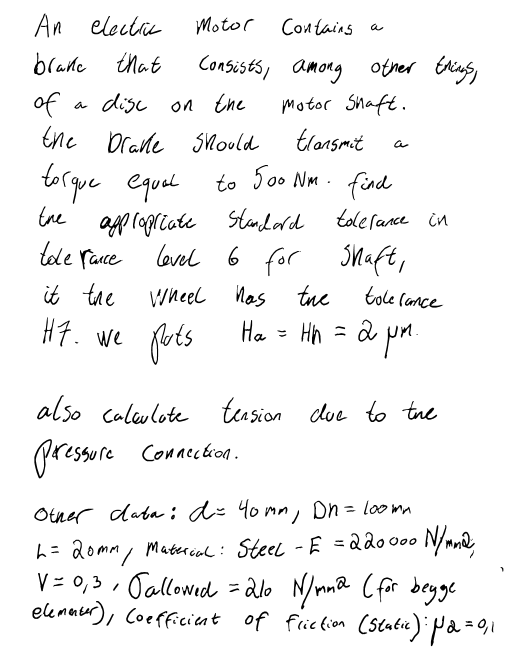 An electric motor contains a
brake that consists, among other things,
of a disc on the motor shaft.
the brake should transmit a
torque equal to 500 Nm. find
the appropriate standard tolerance in
tolerance level 6 for shaft,
if the wheel has the tolerance
H7. we puts Ha = Hn = 2 μm.
also calculate tension due to the
pressure connection.
Other data: d = 40 mm, Dn = 100 mm
L = 20mm, Material: Steel - E = 220 000 N/mm2,
V = 0,3, σallowed = 210 N/mm2 (for begge
elementer), Coefficient of friction (static): μa = 0,1